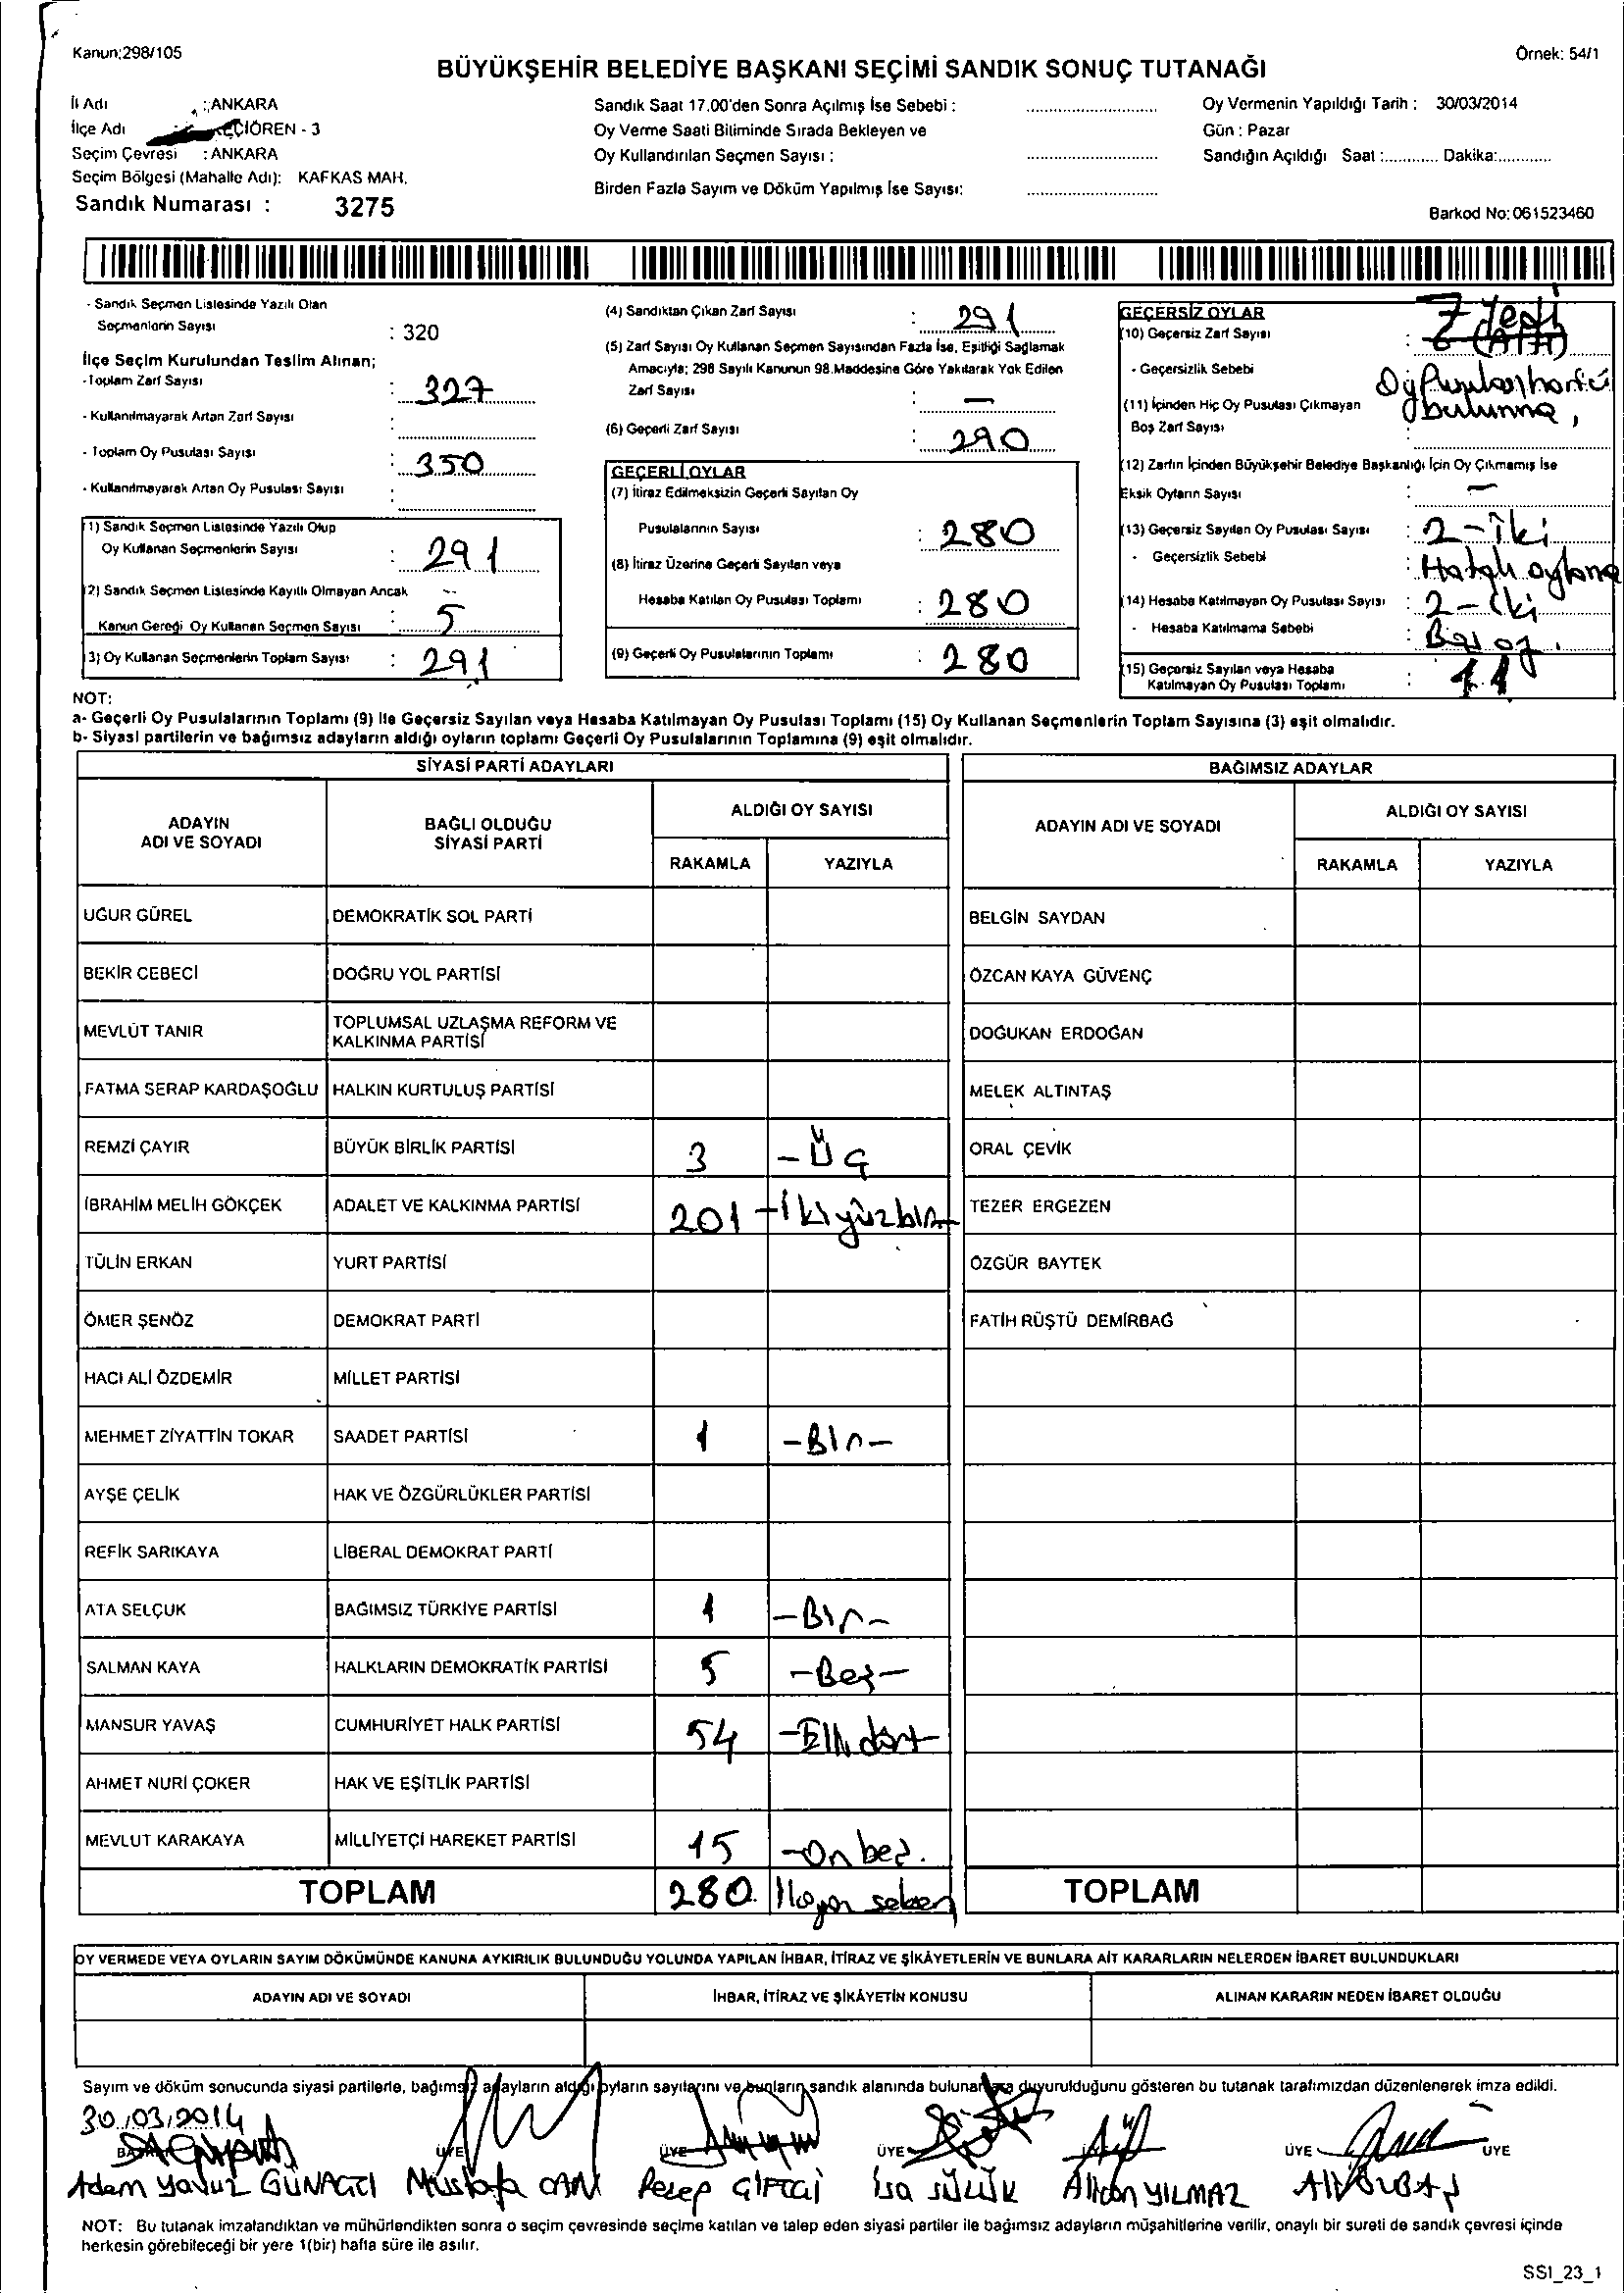 Kanun:298/105
Örnek: 54/1
BÜYÜKŞEHİR BELEDİYE BAŞKANI SEÇİMİ SANDIK SONUÇ TUTANAĞI
İl Adı : ANKARA
İlçe Adı KEÇİÖREN - 3
Seçim Çevresi : ANKARA
Seçim Bölgesi (Mahalle Adı): KAFKAS MAH.
Sandık Numarası : 3275
Sandık Saat 17.00'den Sonra Açılmış İse Sebebi :
Oy Verme Saati Bitiminde Sırada Bekleyen ve
Oy Kullandırılan Seçmen Sayısı :
Birden Fazla Sayım ve Döküm Yapılmış İse Sayısı:
Oy Vermenin Yapıldığı Tarih : 30/03/2014
Gün : Pazar
Sandığın Açıldığı Saat :............ Dakika:............
Barkod No: 061523460
- Sandık Seçmen Listesinde Yazılı Olan
Seçmenlerin Sayısı : 320
İlçe Seçim Kurulundan Teslim Alınan;
- Toplam Zarf Sayısı : 327
- Kullanılmayarak Artan Zarf Sayısı :
- Toplam Oy Pusulası Sayısı : 350
- Kullanılmayarak Artan Oy Pusulası Sayısı :
(1) Sandık Seçmen Listesinde Yazılı Olup
Oy Kullanan Seçmenlerin Sayısı : 291
(2) Sandık Seçmen Listesinde Kayıtlı Olmayan Ancak
Kanun Gereği Oy Kullanan Seçmen Sayısı : 5
(3) Oy Kullanan Seçmenlerin Toplam Sayısı : 291
(4) Sandıktan Çıkan Zarf Sayısı : 291
(5) Zarf Sayısı Oy Kullanan Seçmen Sayısından Fazla İse, Eşitliği Sağlamak
Amacıyla; 298 Sayılı Kanunun 98.Maddesine Göre Yakılarak Yok Edilen
Zarf Sayısı : —
(6) Geçerli Zarf Sayısı : 290
GEÇERLİ OYLAR
(7) İtiraz Edilmeksizin Geçerli Sayılan Oy
Pusulalarının Sayısı : 280
(8) İtiraz Üzerine Geçerli Sayılan veya
Hesaba Katılan Oy Pusulası Toplamı : 280
(9) Geçerli Oy Pusulalarının Toplamı : 280
GEÇERSİZ OYLAR
(10) Geçersiz Zarf Sayısı : 7 Yedi
- Geçersizlik Sebebi Oy Pusulası harici
bulunma,
(11) İçinden Hiç Oy Pusulası Çıkmayan
Boş Zarf Sayısı :
(12) Zarfın İçinden Büyükşehir Belediye Başkanlığı İçin Oy Çıkmamış İse
Eksik Oyların Sayısı : —
(13) Geçersiz Sayılan Oy Pusulası Sayısı : 2-İki
- Geçersizlik Sebebi : Hatalı oylama
(14) Hesaba Katılmayan Oy Pusulası Sayısı : 2-İki
- Hesaba Katılmama Sebebi : Boş oy.
(15) Geçersiz Sayılan veya Hesaba
Katılmayan Oy Pusulası Toplamı : 11
NOT:
a- Geçerli Oy Pusulalarının Toplamı (9) ile Geçersiz Sayılan veya Hesaba Katılmayan Oy Pusulası Toplamı (15) Oy Kullanan Seçmenlerin Toplam Sayısına (3) eşit olmalıdır.
b- Siyasi partilerin ve bağımsız adayların aldığı oyların toplamı Geçerli Oy Pusulalarının Toplamına (9) eşit olmalıdır.
SİYASİ PARTİ ADAYLARI
BAĞIMSIZ ADAYLAR
ADAYIN ADI VE SOYADI
BAĞLI OLDUĞU SİYASİ PARTİ
ALDIĞI OY SAYISI
RAKAMLA YAZIYLA
ADAYIN ADI VE SOYADI
ALDIĞI OY SAYISI
RAKAMLA YAZIYLA
UĞUR GÜREL DEMOKRATİK SOL PARTİ BELGİN SAYDAN
BEKİR CEBECİ DOĞRU YOL PARTİSİ ÖZCAN KAYA GÜVENÇ
MEVLÜT TANIR TOPLUMSAL UZLAŞMA REFORM VE KALKINMA PARTİSİ DOĞUKAN ERDOĞAN
FATMA SERAP KARDAŞOĞLU HALKIN KURTULUŞ PARTİSİ MELEK ALTINTAŞ
REMZİ ÇAYIR BÜYÜK BİRLİK PARTİSİ 3 -Üç ORAL ÇEVİK
İBRAHİM MELİH GÖKÇEK ADALET VE KALKINMA PARTİSİ 201 -İkiyüzbir- TEZER ERGEZEN
TÜLİN ERKAN YURT PARTİSİ ÖZGÜR BAYTEK
ÖMER ŞENÖZ DEMOKRAT PARTİ FATİH RÜŞTÜ DEMİRBAĞ
HACI ALİ ÖZDEMİR MİLLET PARTİSİ
MEHMET ZİYATTİN TOKAR SAADET PARTİSİ 1 -Bir-
AYŞE ÇELİK HAK VE ÖZGÜRLÜKLER PARTİSİ
REFİK SARIKAYA LİBERAL DEMOKRAT PARTİ
ATA SELÇUK BAĞIMSIZ TÜRKİYE PARTİSİ 1 -Bir-
SALMAN KAYA HALKLARIN DEMOKRATİK PARTİSİ 5 -Beş-
MANSUR YAVAŞ CUMHURİYET HALK PARTİSİ 54 -Elli dört-
AHMET NURİ ÇOKER HAK VE EŞİTLİK PARTİSİ
MEVLUT KARAKAYA MİLLİYETÇİ HAREKET PARTİSİ 15 -On beş.
TOPLAM 280 TOPLAM
OY VERMEDE VEYA OYLARIN SAYIM DÖKÜMÜNDE KANUNA AYKIRILIK BULUNDUĞU YOLUNDA YAPILAN İHBAR, İTİRAZ VE ŞİKÂYETLERİN VE BUNLARA AİT KARARLARIN NELERDEN İBARET BULUNDUKLARI
ADAYIN ADI VE SOYADI İHBAR, İTİRAZ VE ŞİKÂYETİN KONUSU ALINAN KARARIN NEDEN İBARET OLDUĞU
Sayım ve döküm sonucunda siyasi partilerle, bağımsız adayların aldığı oyların sayılarını ve bunların sandık alanında bulunanlara duyurulduğunu gösteren bu tutanak tarafımızdan düzenlenerek imza edildi.
30.03.2014
BAŞKAN ÜYE ÜYE ÜYE ÜYE ÜYE ÜYE
Adem Yavuz GÜNAGCI Mustafa CAN Recep ÇİFTÇİ İsa SÜLÜK Alican YILMAZ
NOT: Bu tutanak imzalandıktan ve mühürlendikten sonra o seçim çevresinde seçime katılan ve talep eden siyasi partiler ile bağımsız adayların müşahitlerine verilir, onaylı bir sureti de sandık çevresi içinde
herkesin görebileceği bir yere 1(bir) hafta süre ile asılır.
SSI_23_1